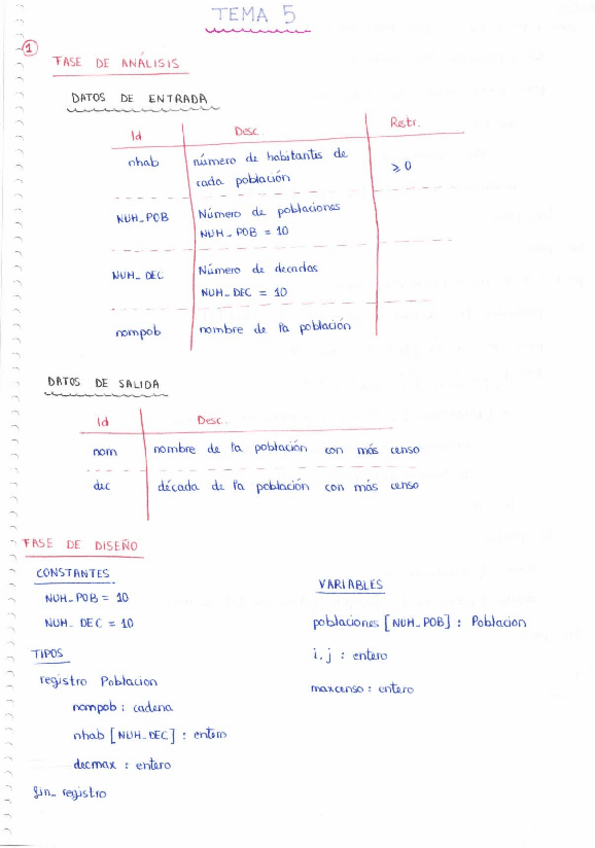 TEMA 5
1
FASE DE ANÁLISIS
DATOS DE ENTRADA
Id Desc. Restr.
nhab número de habitantes de
cada población ≥ 0
NUM_POB Número de poblaciones
NUM_POB = 10
NUM_DEC Número de decadas
NUM_DEC = 10
nompob nombre de la población
DATOS DE SALIDA
Id Desc.
nom nombre de la población con más censo
dec década de la población con más censo
FASE DE DISEÑO
CONSTANTES
NUM_POB = 10
NUM_DEC = 10
TIPOS
registro Poblacion
nompob : cadena
nhab [NUM_DEC] : entero
decmax : entero
fin_registro
VARIABLES
poblaciones [NUM_POB] : Poblacion
i, j : entero
maxcenso : entero